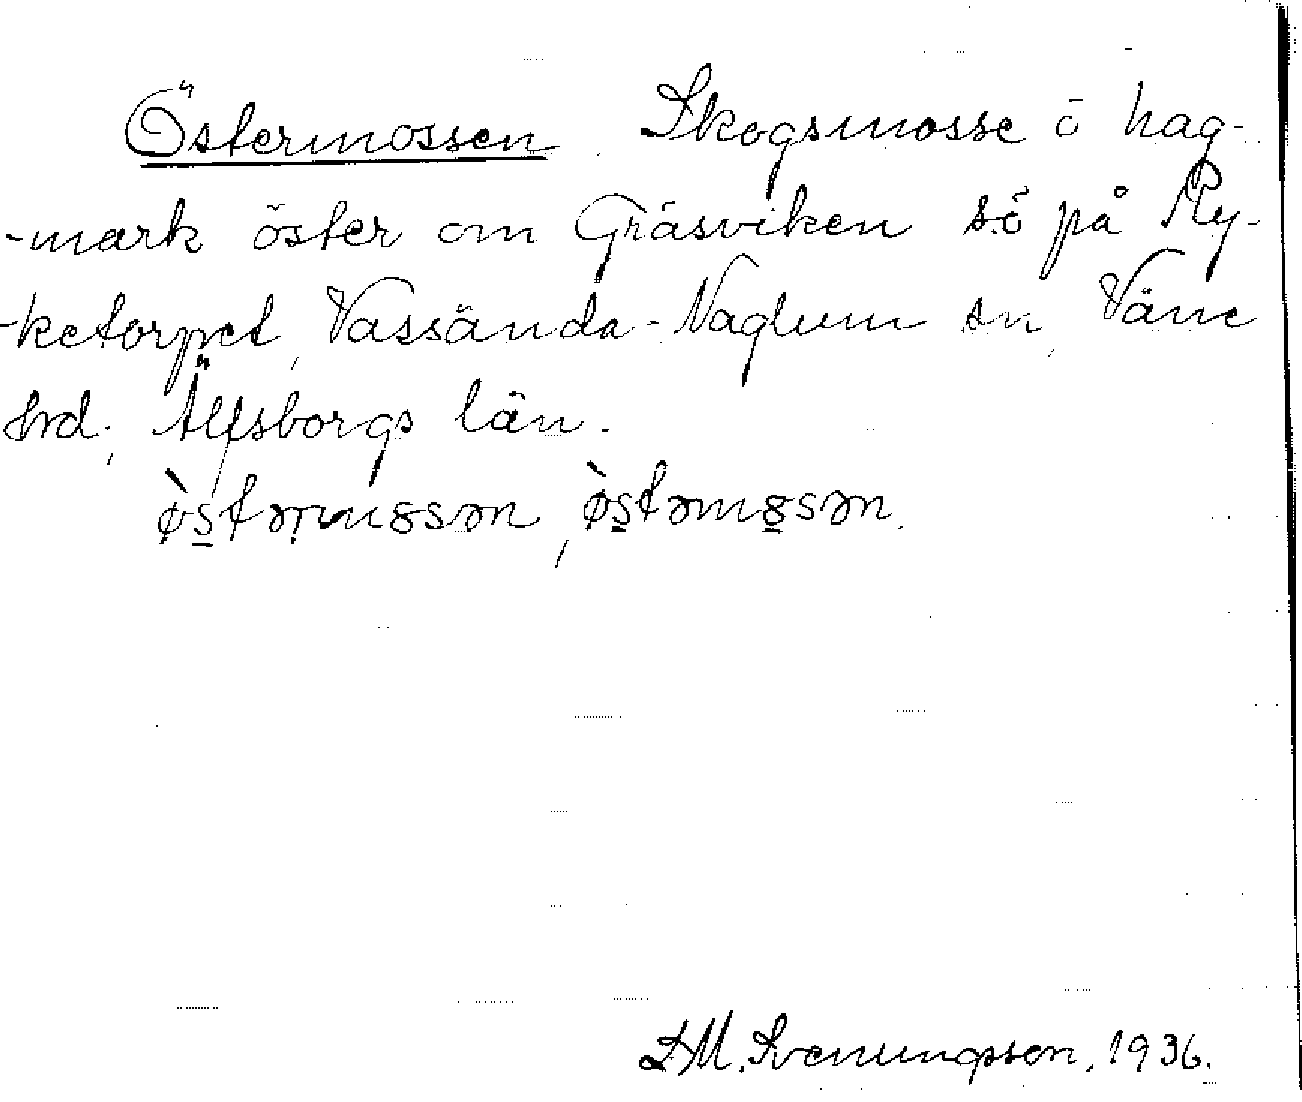 Östermossen. Skogsmosse i hag-
-mark öster om Gräsviken sö på Ry-
-ketorpet, Vassända-Naglum sn, Väne
hrd., Älfsborgs län.
ø̀s̲tərm8sən, ø̀s̲təm8̲sən.
S.M. Svenungsson, 1936.